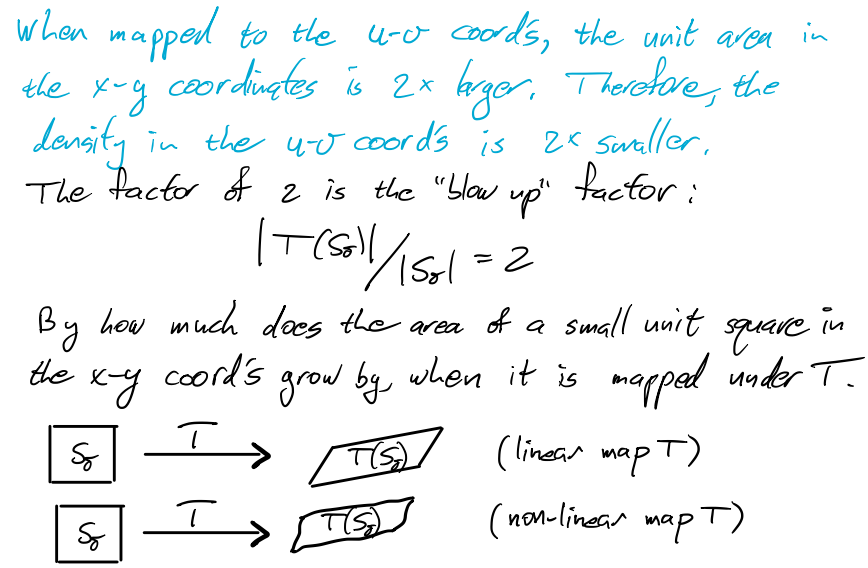 When mapped to the u-v coord's, the unit area in
the x-y coordinates is 2x larger. Therefore, the
density in the u-v coord's is 2x smaller.
The factor of 2 is the "blow up" factor:
|T(Sδ)|/|Sδ| = 2
By how much does the area of a small unit square in
the x-y coord's grow by, when it is mapped under T.
Sδ T T(Sδ) (linear map T)
Sδ T T(Sδ) (non-linear map T)